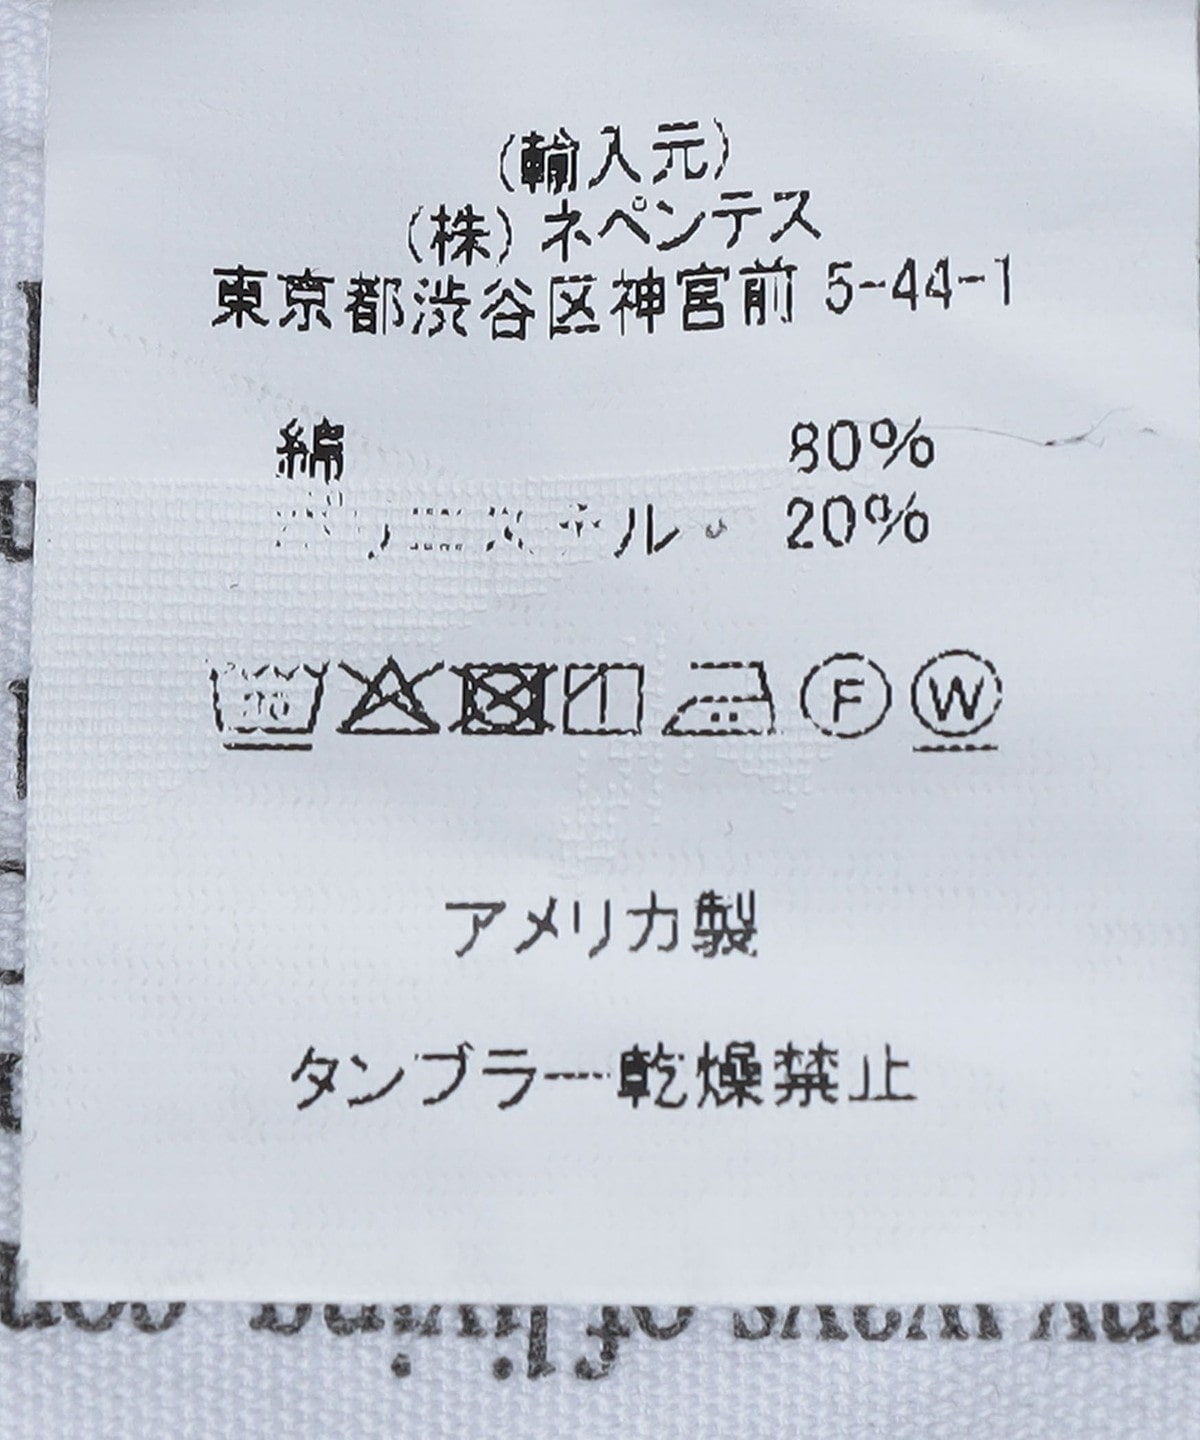 (輸入元)
(株)ネペンテス
東京都渋谷区神宮前 5-44-1
綿 80%
ポリエステル 20%
F W
アメリカ製
タンブラー乾燥禁止
any ways of living, con